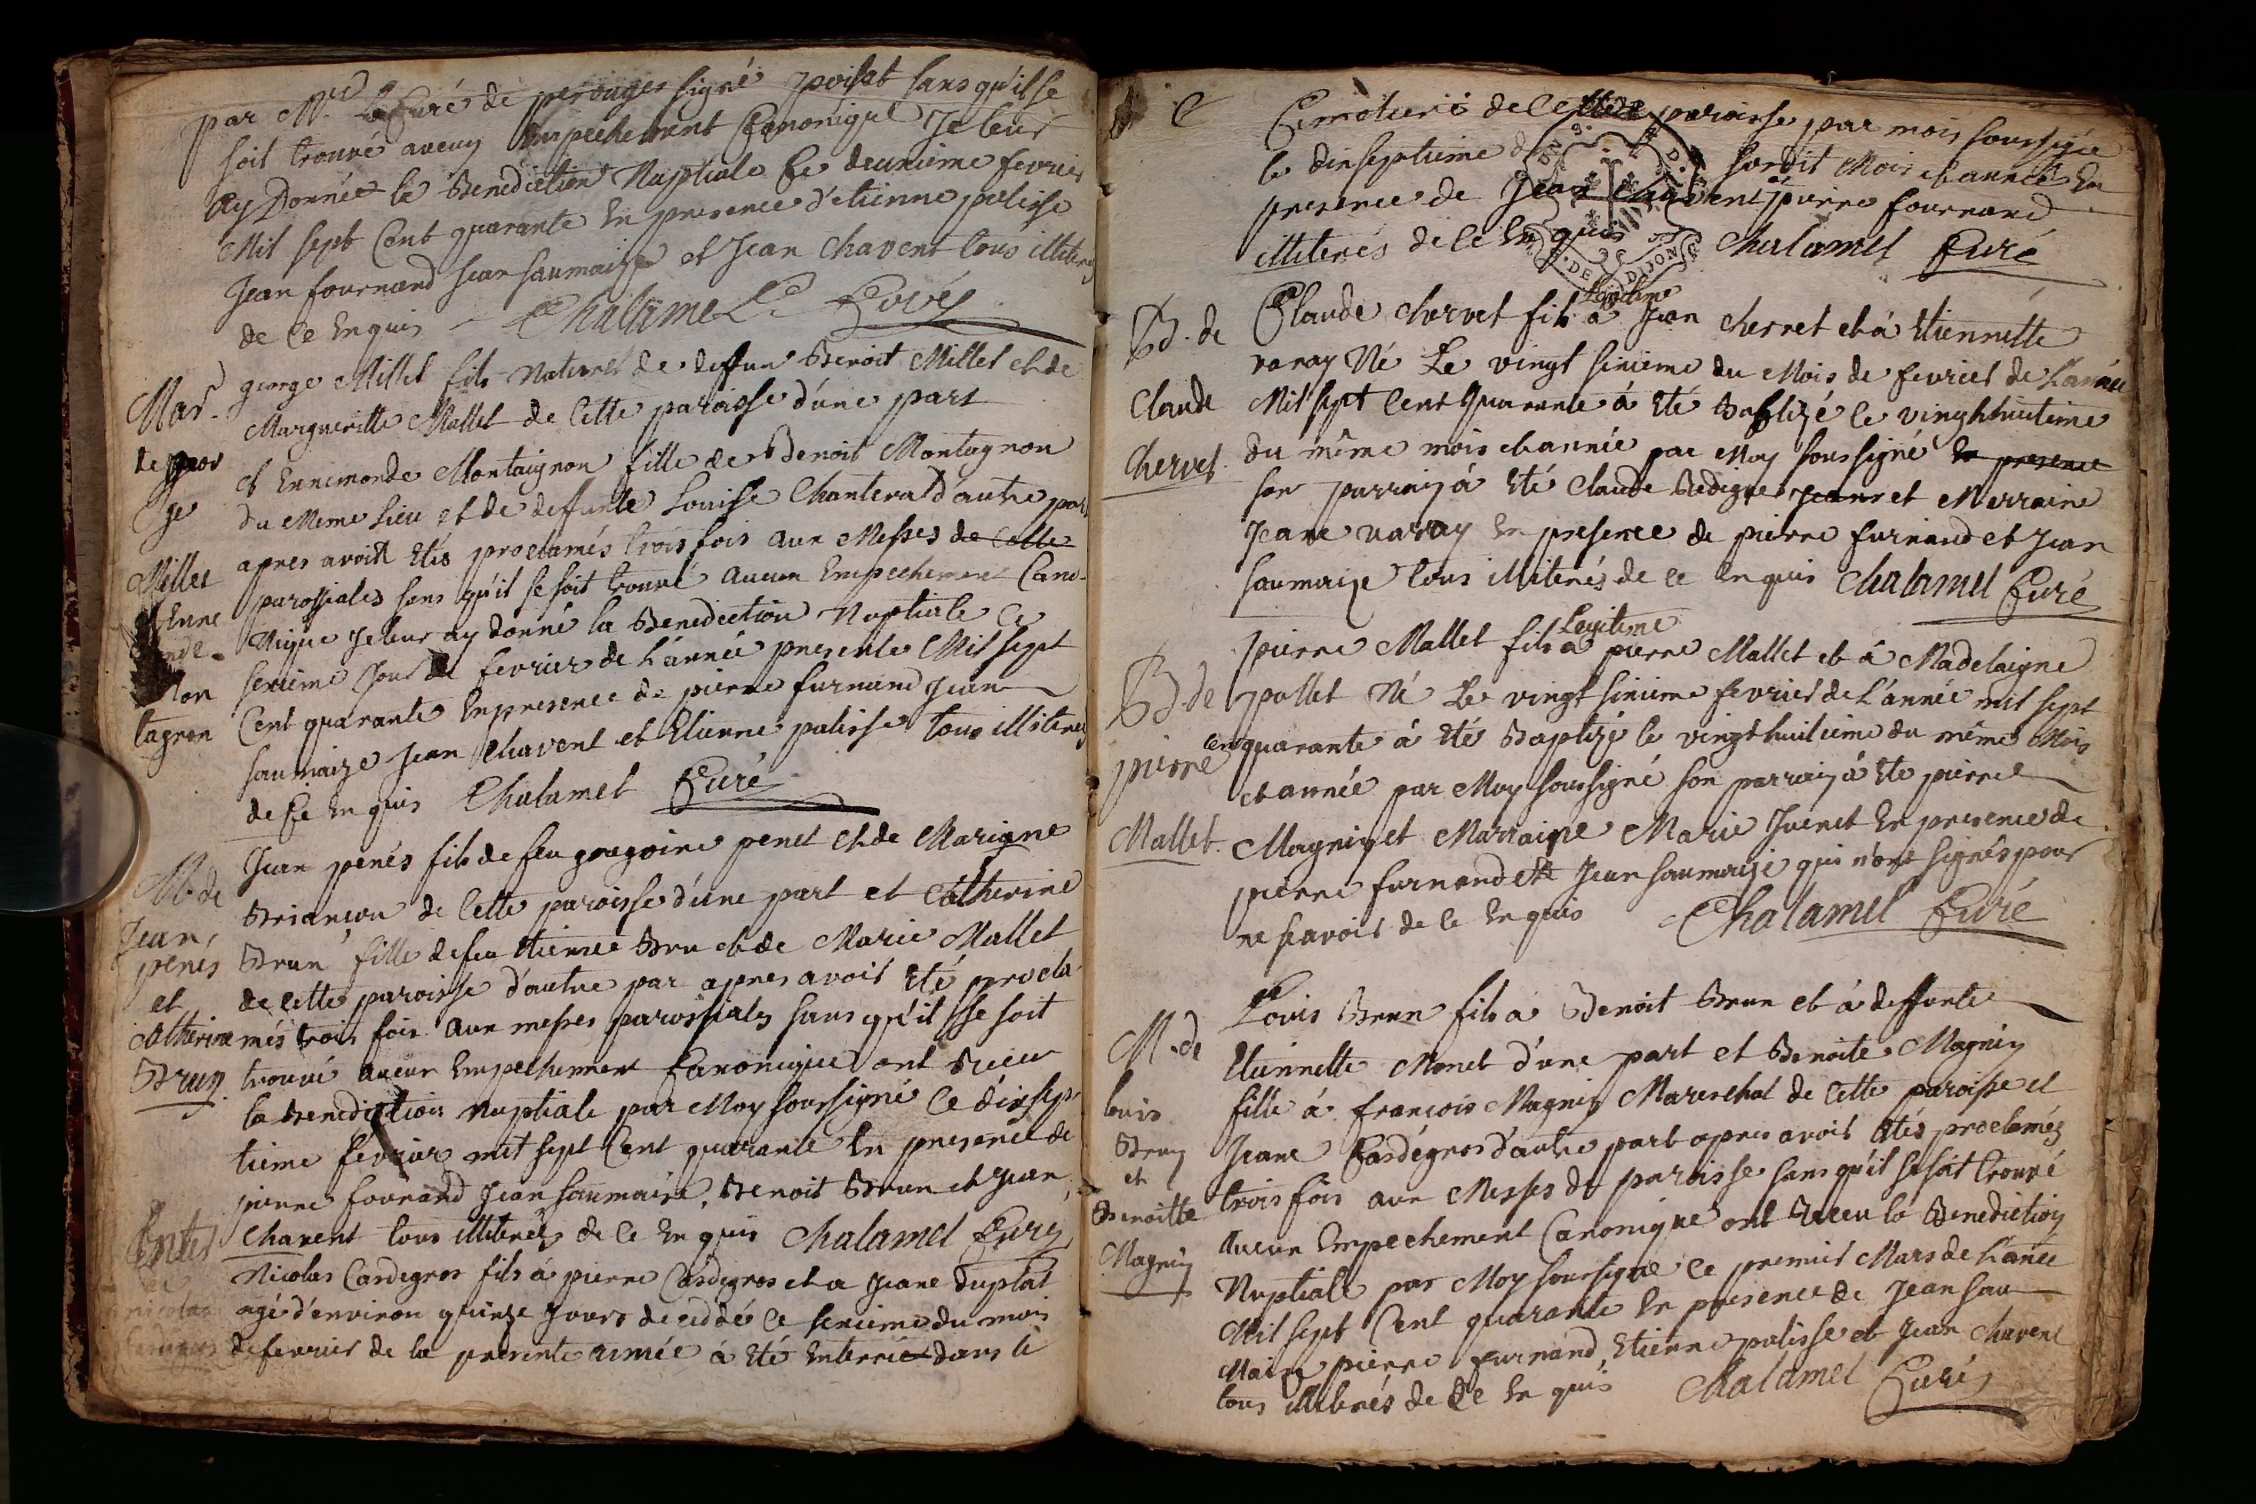 par Mr. le Curé de perouges signé poisat sans qu'il se
soit trouvé aucun Empechement Canonique Je leur
Ay Donnée la Benediction Nuptiale Ce deuxième fevrier
Mil sept Cent quarante En presence d'etienne palisse
Jean fournand jean saumaize et Jean chavent tous illiterés
de Ce Enquis Chalamel Curé
Mar.
de geor
ge
Millet
Enne
tagnon
george Millet fils naturel de deffun Benoit Millet et de
Margueritte Mallet de Cette paroisse d'une part
et Ennemonde Montaignon fille de Benoit Montagnon
du meme lieu et de deffunte Louisse Chanterat d'autre par
apres avoir Etés proclamés trois fois aux Messes de Cette
paroissiales sans qu'il se soit trouvé aucun Empechement Cano-
nique Je leur ay donné la Benediction Nuptiale Ce
seixieme Jour de fevrier de L'année presente Mil sept
Cent quarante En presence de pierre furnand Jean
saumaize Jean Chavent et Etienne palisse tous illiterés
de Ce Enquis Chalamel Curé
M. de
Jean
penés
et
Catherine
Brun
Jean penés fils de feu gregoire penet et de Marigne
Briançon de Cette paroisse d'une part et Catherine
Brun fille de feu Etienne Brun et de Marie Mallet
de cette paroisse d'autre par apres avoir Eté procla-
més trois fois aux messes paroissiales sans qu'il se soit
trouvé aucun Empechement Canonique ont Receu
la Benediction Nuptiale par Moy soussigné Ce dixsep-
tieme fevrier mil sept Cent quarante En presence de
pierre fournand Jean saumaire, Benoit Brun et Jean
Chavent tous illiterés de Ce Enquis Chalamel Curé
Enter
Nicolas Cardegros fils á pierre Cardegros et a Jeane Duplat
agé d'environ quinze Jours deceddé Ce seixieme du mois
de fevrier de la presente année á Eté Enterrié dans le
Cimetiere de Cette paroisse par mois soussigné
le dixseptieme susdit Mois et année En
presence de Jean Chavent et pierre fournand
illiterés de Ce Enquis Chalamel Curé
Bd. de
Claude
Chervet
Legitime
Claude Chervet fils á Jean Chervet et á Etiennette
varay Né Le vingt sixieme du Mois de fevrier de L'année
Mil sept Cent Quarante á Eté Baptizé le vingthuitieme
du même mois et année par Moy soussigné En presence
son parrain á Eté Claude Jeane et Merraine
Jeane varay En presence de pierre furnand et Jean
saumaize tous illiterés de Ce Enquis Chalamel Curé
Bd. de
pierre
Mallet
Legitime
pierre Mallet fils a pierre Mallet et á Madelaigne
pollet Né Le vingt sixieme fevrier de L'année mil sept
cen quarante á Etés Baptizé le vingthuitieme du même Mois
et année par Moy soussigné son parrain á Eté pierre
Magnin et Marraine Marie Juenet En presence de
pierre furnand et Jean saumaize qui n'ont signés pour
ne scavoir de Ce Enquis Chalamel Curé
M. de
louis
Brun
et
Benoitte
Magnin
Louis Brun fils a Benoit Brun et á deffunte
Etiennette Monet d'une part et Benoite Magnin
fille á françois Magnin Mareschal de Cette paroisse et
Jeane Cardegros d'autre part apres avoir Etés proclamés
trois fois aux Messes de paroisse sans qu'il se soit trouvé
Aucun Empechement Canonique ont Receu la Benediction
Nuptiale par Moy soussigné Ce premier Mars de L'anee
Mil sept Cent quarante En presence de Jean sau
Maize pierre furnand, Etienne palisse et Jean Chavent
tous illiterés de Ce Enquis Chalamel Curé